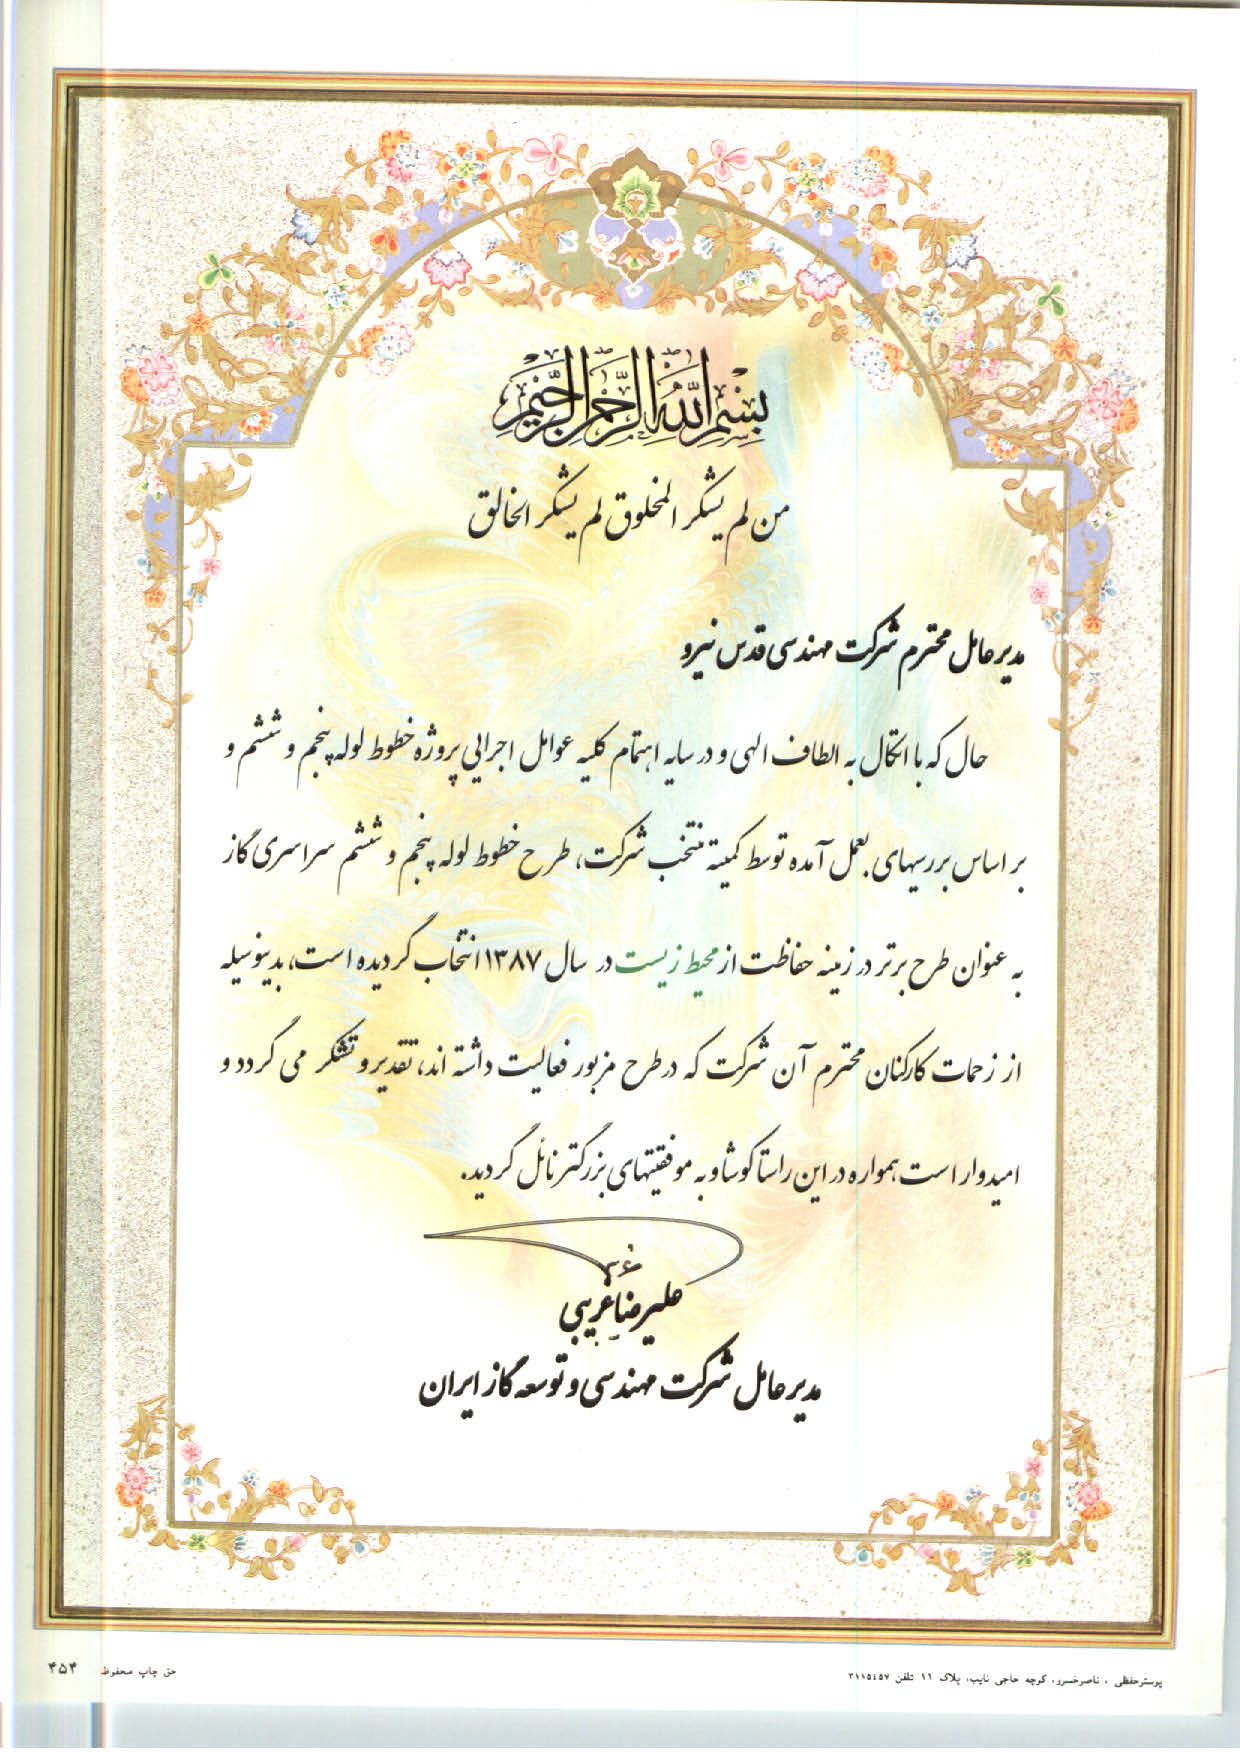 بسم الله الرحمن الرحیم
من لم یشکر المخلوق لم یشکر الخالق
مدیرعامل محترم شرکت مهندسی قدس نیرو
حال که با اتکال به الطاف الهی و در سایه اهتمام کلیه عوامل اجرایی پروژه خطوط لوله پنجم و ششم و
بر اساس بررسیهای بعمل آمده توسط کمیته منتخب شرکت، طرح خطوط لوله پنجم و ششم سراسری گاز
به عنوان طرح برتر در زمینه حفاظت از محیط زیست در سال ۱۳۸۷ انتخاب گردیده است، بدینوسیله
از زحمات کارکنان محترم آن شرکت که در طرح مزبور فعالیت داشته اند، تقدیر و تشکر می گردد و
امیدوار است همواره در این راستا کوشا و به موفقیتهای بزرگتر نائل گردید.
علیرضا غریبی
مدیرعامل شرکت مهندسی و توسعه گاز ایران
پوسترحفظی . ناصرخسرو، کوچه حاجی نایب، پلاک ۱۱ تلفن ۳۱۱۵۴۵۷
حق چاپ محفوظ ۴۵۴